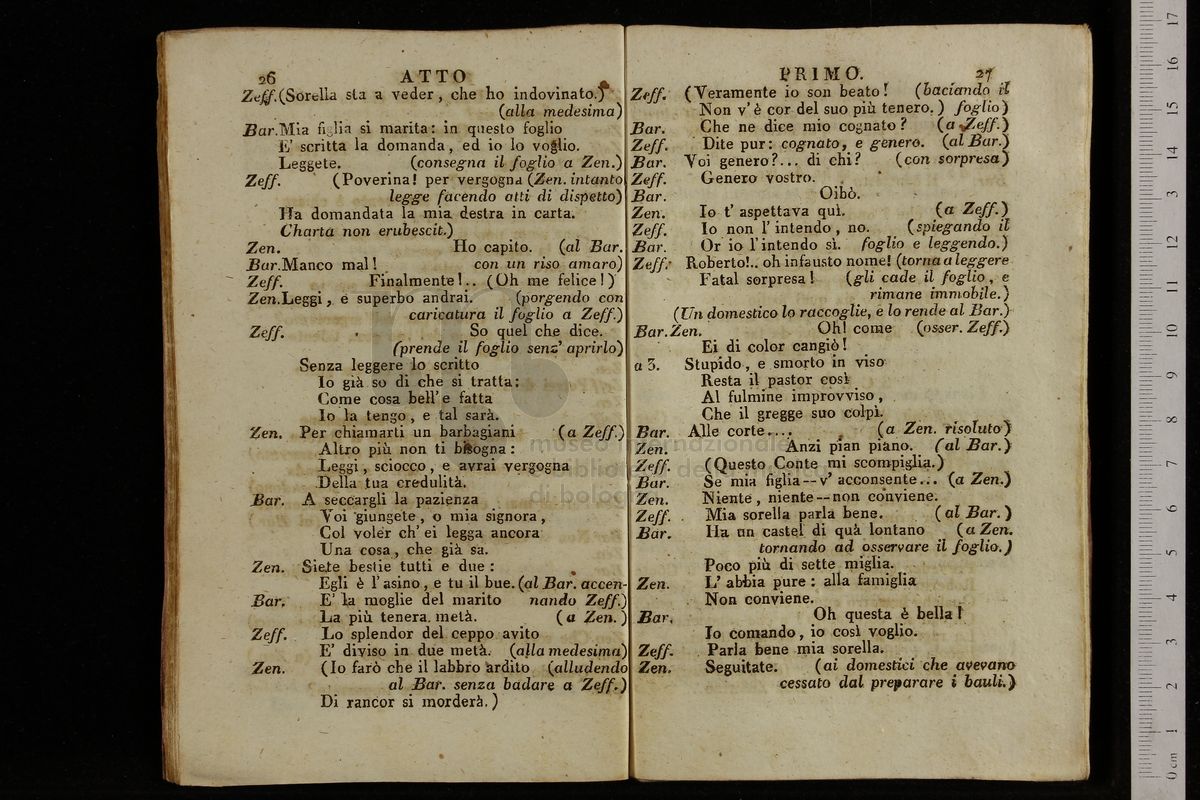 26 ATTO
Zeff. (Sorella sta a veder, che ho indovinato.)
(alla medesima)
Bar. Mia figlia si marita: in questo foglio
E' scritta la domanda, ed io lo voglio.
Leggete. (consegna il foglio a Zen.)
Zeff. (Poverina! per vergogna (Zen. intanto
legge facendo atti di dispetto)
Ha domandata la mia destra in carta.
Charta non erubescit.)
Zen. Ho capito. (al Bar.
Bar. Manco mal! con un riso amaro)
Zeff. Finalmente!.. (Oh me felice!)
Zen. Leggi, e superbo andrai. (porgendo con
caricatura il foglio a Zeff.)
Zeff. So quel che dice.
(prende il foglio senz' aprirlo)
Senza leggere lo scritto
Io già so di che si tratta:
Come cosa bell' e fatta
Io la tengo, e tal sarà.
Zen. Per chiamarti un barbagiani (a Zeff.)
Altro più non ti bisogna:
Leggi, sciocco, e avrai vergogna
Della tua credulità.
Bar. A seccargli la pazienza
Voi giungete, o mia signora,
Col voler ch' ei legga ancora
Una cosa, che già sa.
Zen. Siete bestie tutti e due:
Egli è l' asino, e tu il bue. (al Bar. accen-
Bar. E' la moglie del marito nando Zeff.)
La più tenera metà. (a Zen.)
Zeff. Lo splendor del ceppo avito
E' diviso in due metà. (alla medesima)
Zen. (Io farò che il labbro ardito (alludendo
al Bar. senza badare a Zeff.)
Di rancor si morderà.)
PRIMO. 27
Zeff. (Veramente io son beato! (baciando il
Non v' è cor del suo più tenero.) foglio)
Bar. Che ne dice mio cognato? (a Zeff.)
Zeff. Dite pur: cognato, e genero. (al Bar.)
Bar. Voi genero?... di chi? (con sorpresa)
Zeff. Genero vostro.
Bar. Oibò.
Zen. Io t' aspettava quì. (a Zeff.)
Zeff. Io non l' intendo, no. (spiegando il
Bar. Or io l' intendo sì. foglio e leggendo.)
Zeff. Roberto!.. oh infausto nome! (torna a leggere
Fatal sorpresa! (gli cade il foglio, e
rimane immobile.)
(Un domestico lo raccoglie, e lo rende al Bar.)
Bar. Zen. Oh! come (osser. Zeff.)
Ei di color cangiò!
a 3. Stupido, e smorto in viso
Resta il pastor così
Al fulmine improvviso,
Che il gregge suo colpì.
Bar. Alle corte.... (a Zen. risoluto)
Zen. Anzi pian piano. (al Bar.)
Zeff. (Questo Conte mi scompiglia.)
Bar. Se mia figlia -- v' acconsente... (a Zen.)
Zen. Niente, niente -- non conviene.
Zeff. Mia sorella parla bene. (al Bar.)
Bar. Ha un castel di quà lontano (a Zen.
tornando ad osservare il foglio.)
Poco più di sette miglia.
Zen. L' abbia pure: alla famiglia
Non conviene.
Bar. Oh questa è bella!
Io comando, io così voglio.
Zeff. Parla bene mia sorella.
Zen. Seguitate. (ai domestici che avevano
cessato dal preparare i bauli.)
museo internazionale
biblioteca della musica
di bologna
0 cm 1 2 3 4 5 6 7 8 9 10 11 12 13 14 15 16 17